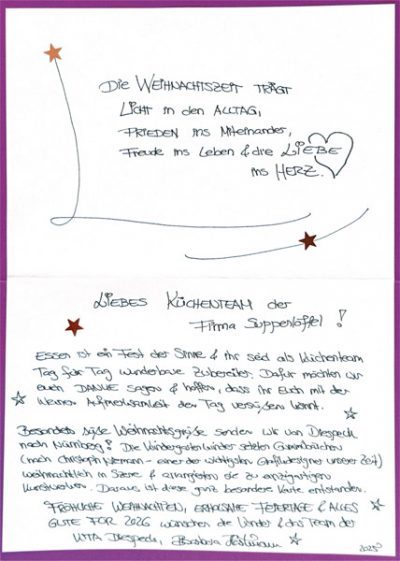 Die Weihnachtszeit trägt
Licht in den Alltag,
Frieden ins Miteinander,
Freude ins Leben & die Liebe
ins Herz.
Liebes Küchenteam der
Firma Suppenlöffel!
Essen ist ein Fest der Sinne & ihr seid als Küchenteam
Tag für Tag wunderbare Zubereiter. Dafür möchten wir
euch DANKE sagen & hoffen, dass ihr Euch mit der
kleinen Aufmerksamkeit den Tag versüßen könnt.
Besonders süße Weihnachtsgrüße senden wir von Diespeck
nach Nürnberg! Die Kindergartenkinder setzten Gummibärchen
(nach Christoph Niemann - einer der wichtigsten Grafikdesigner unserer Zeit)
weihnachtlich in Szene & arrangierten sie zu einzigartigen
Kunstwerken. Daraus ist diese ganz besondere Karte entstanden.
Fröhliche Weihnachten, erholsame Feiertage & alles
Gute für 2026 wünschen die Kinder & das Team der
KITA Diespeck, Barbara
2025